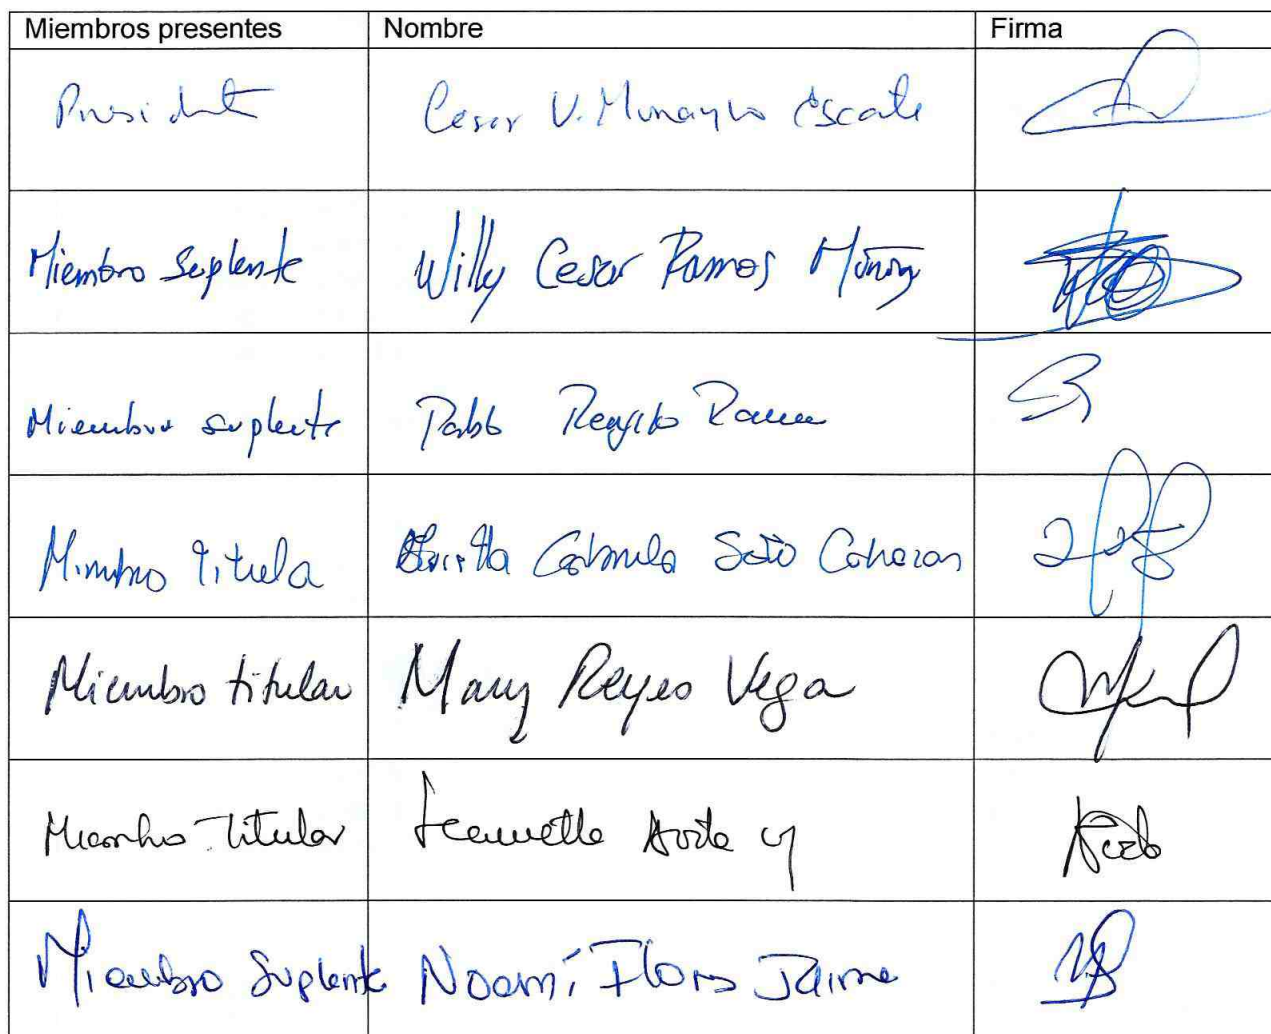 Miembros presentes Nombre Firma
Presidente Cesar V. Munayco Escate
Miembro Suplente Willy Cesar Ramos Muñoz
Miembro suplente Pablo
Miembro titula Soto Cabezas
Miembro titular Mary Reyes Vega
Miembro Titular Jeannette Avila
Miembro Suplente Noemí Flores Jaime